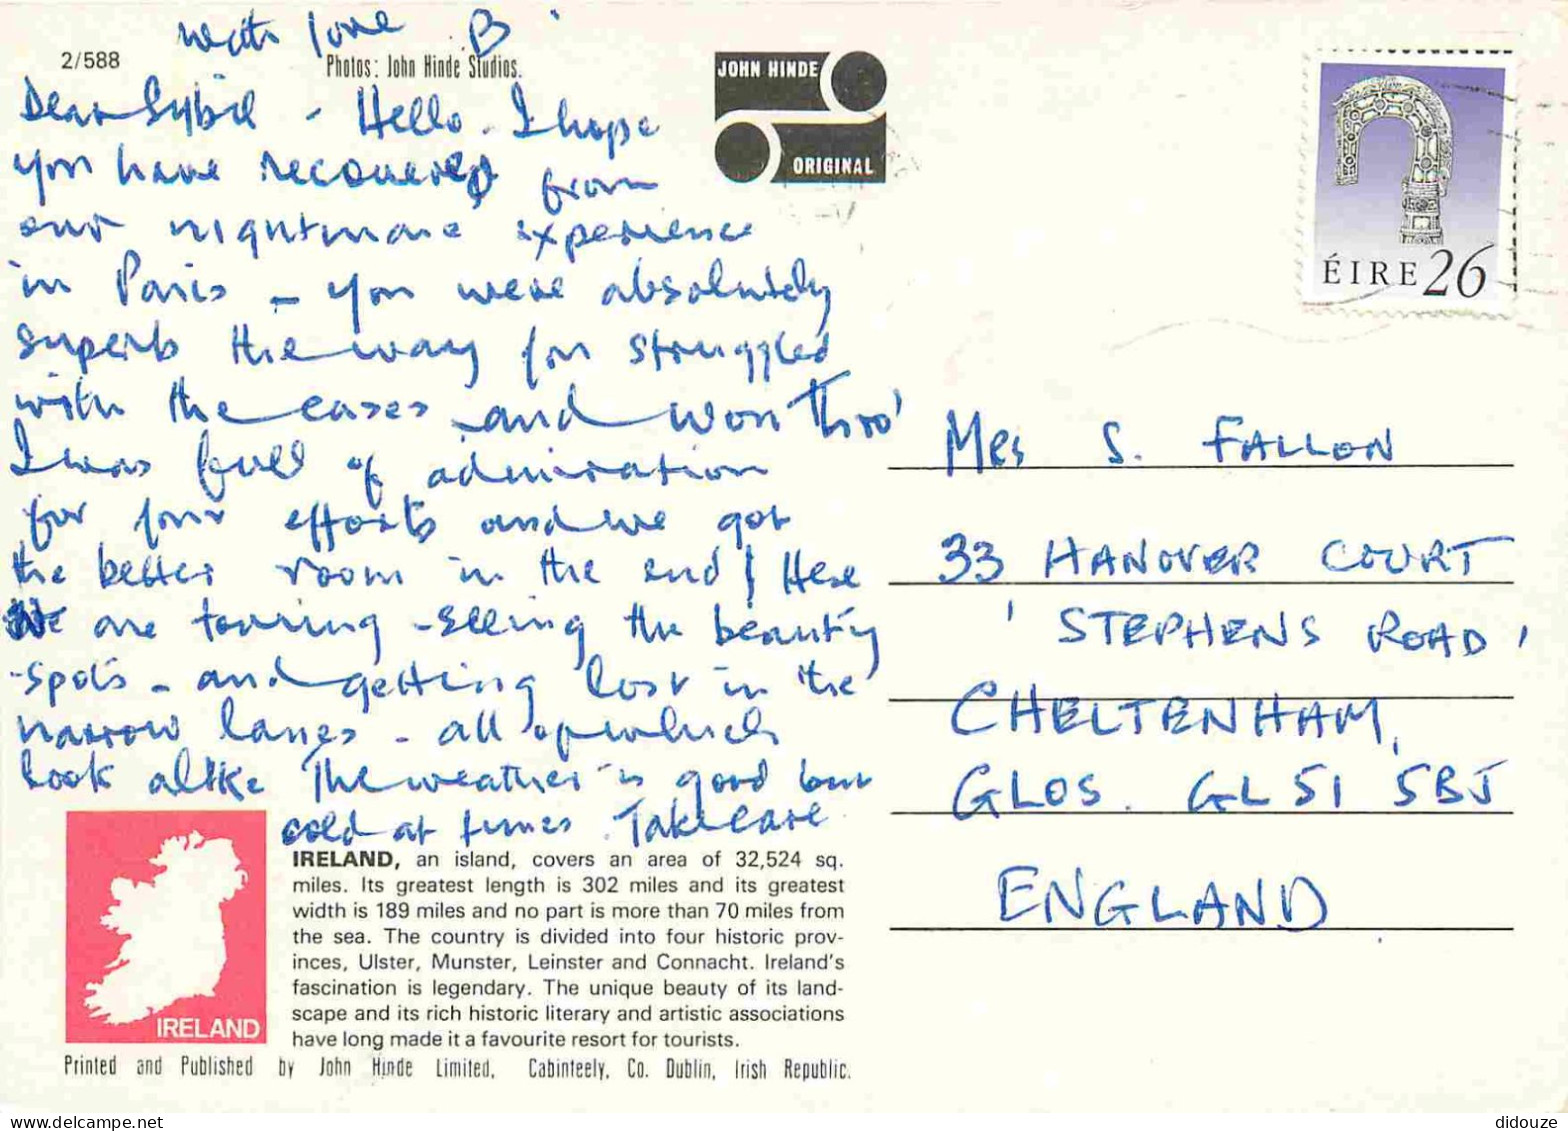 with love B
2/588
Photos: John Hinde Studios.
JOHN HINDE
ORIGINAL
ÉIRE 26
Dear Sybil - Hello. I hope
you have recovered from
our nightmare experience
in Paris - you were absolutely
superb the way you struggled
with the cases and won thro'
I was full of admiration
for your efforts and we got
the better room in the end! Here
we are touring - seeing the beauty
-spots - and getting lost in the
narrow lanes - all of which
look alike The weather is good but
cold at times. Take care
Mrs S. FALLON
33 HANOVER COURT
' STEPHENS ROAD '
CHELTENHAM,
GLOS. GL51 5BJ
ENGLAND
IRELAND
IRELAND, an island, covers an area of 32,524 sq.
miles. Its greatest length is 302 miles and its greatest
width is 189 miles and no part is more than 70 miles from
the sea. The country is divided into four historic prov-
inces, Ulster, Munster, Leinster and Connacht. Ireland's
fascination is legendary. The unique beauty of its land-
scape and its rich historic literary and artistic associations
have long made it a favourite resort for tourists.
Printed and Published by John Hinde Limited, Cabinteely, Co. Dublin, Irish Republic.
didouze